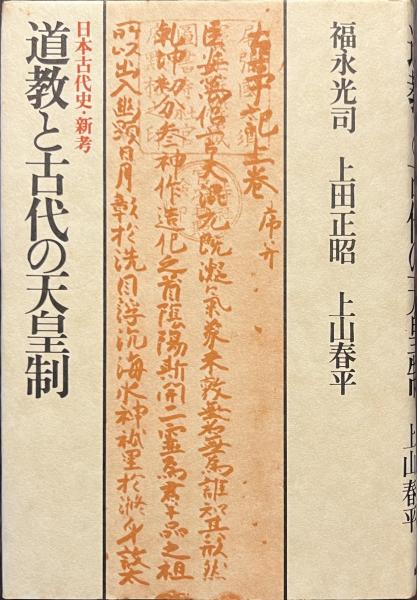 福永光司 上田正昭 上山春平
古事記上巻 序并
臣安萬侶言夫混元既凝氣象未敦無名無為誰知其形然
乾坤初分参神作造化之首陰陽斯開二霊為群品之祖
所以出入幽顕日月彰於洗目浮沈海水神祇呈於滌身故太
日本古代史・新考
道教と古代の天皇制